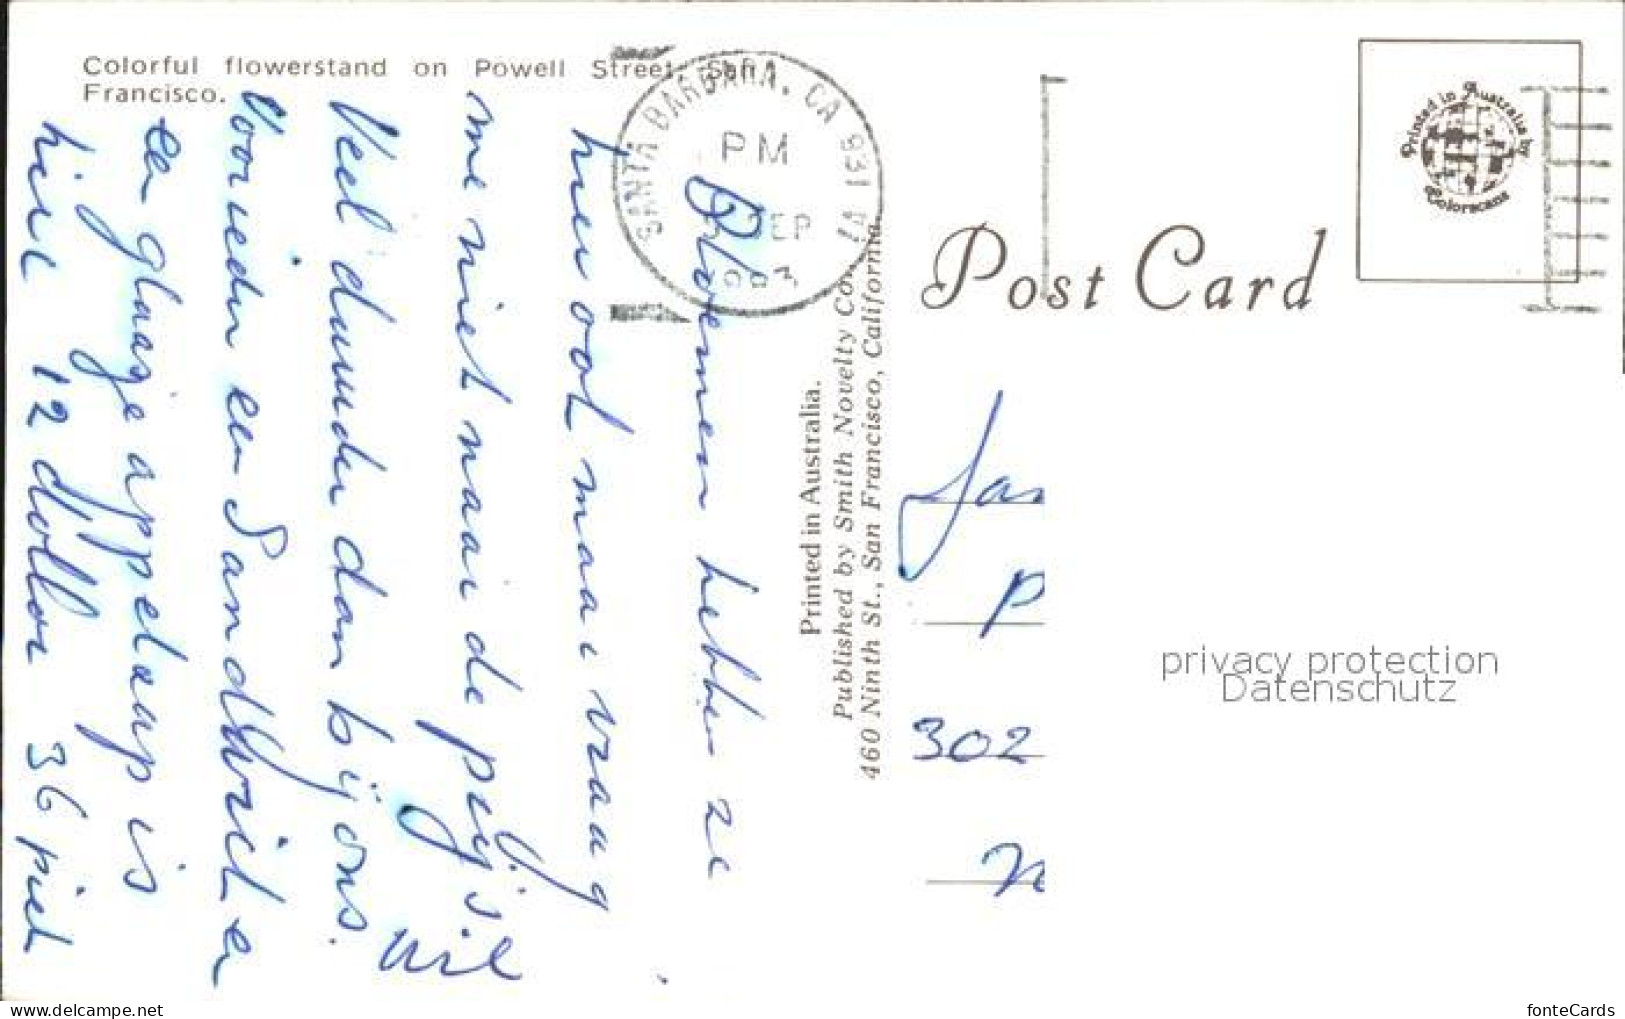 Colorful flowerstand on Powell Street, San
Francisco.
SANTA BARBARA, CA 931
PM
SEP
Bloemen hebben ze
hier ook maar vraag
me niet naar de prijs
Veel duurder dan bij ons.
Voor ieder een Sandwich en
een glaasje appelsap is
hier 12 dollar
36 piek
Wil
Printed in Australia.
Published by Smith Novelty Co.,
460 Ninth St., San Francisco, California.
Post Card
Printed in Australia by
Colorscans
Jan
P
302
N
privacy protection
Datenschutz
www.delcampe.net
fonteCards